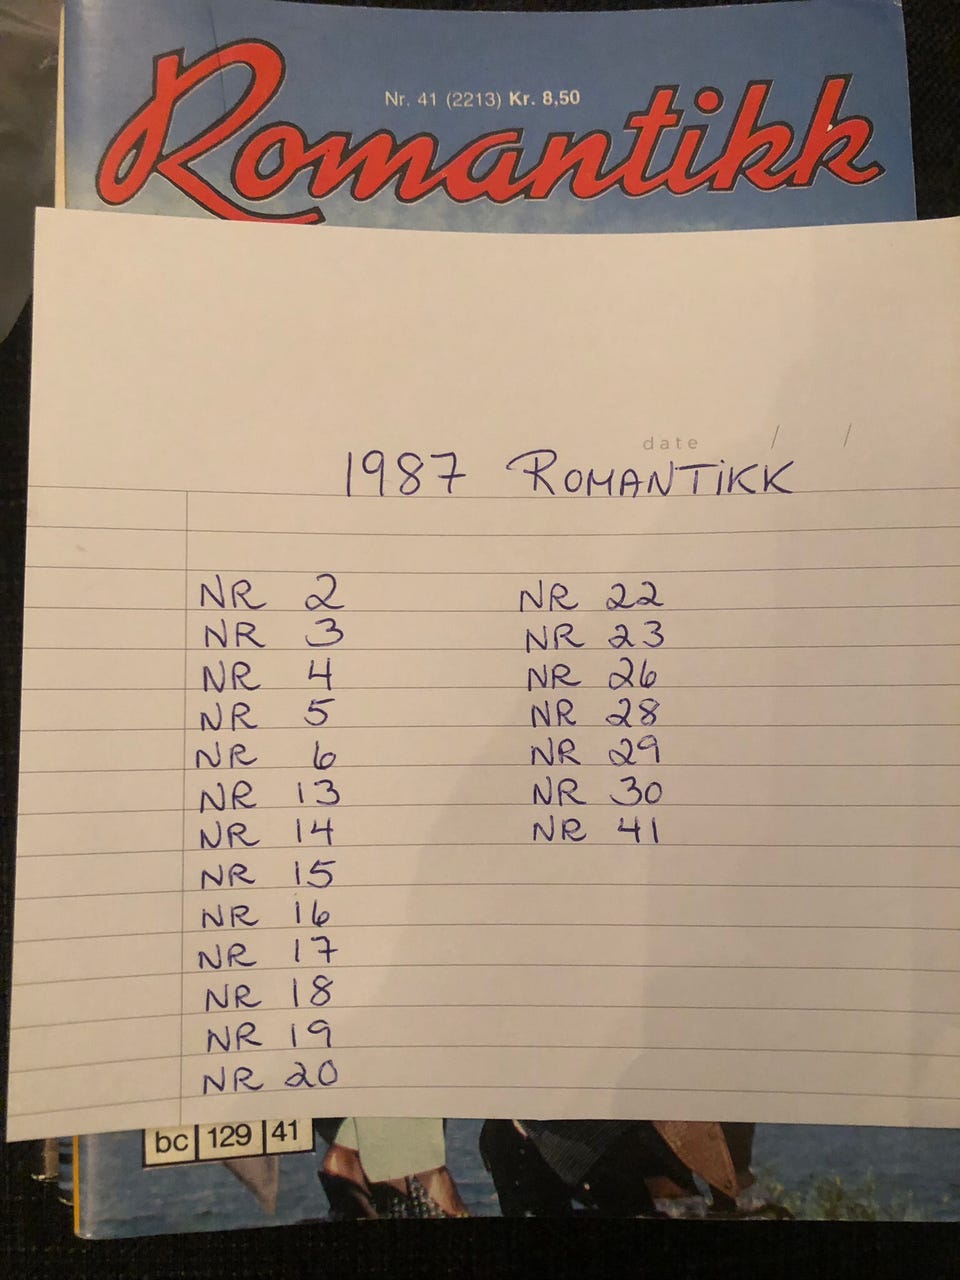 Nr. 41 (2213) Kr. 8,50
Romantikk
date / /
1987 ROMANTIKK
NR 2
NR 3
NR 4
NR 5
NR 6
NR 13
NR 14
NR 15
NR 16
NR 17
NR 18
NR 19
NR 20
NR 22
NR 23
NR 26
NR 28
NR 29
NR 30
NR 41
bc 129 41